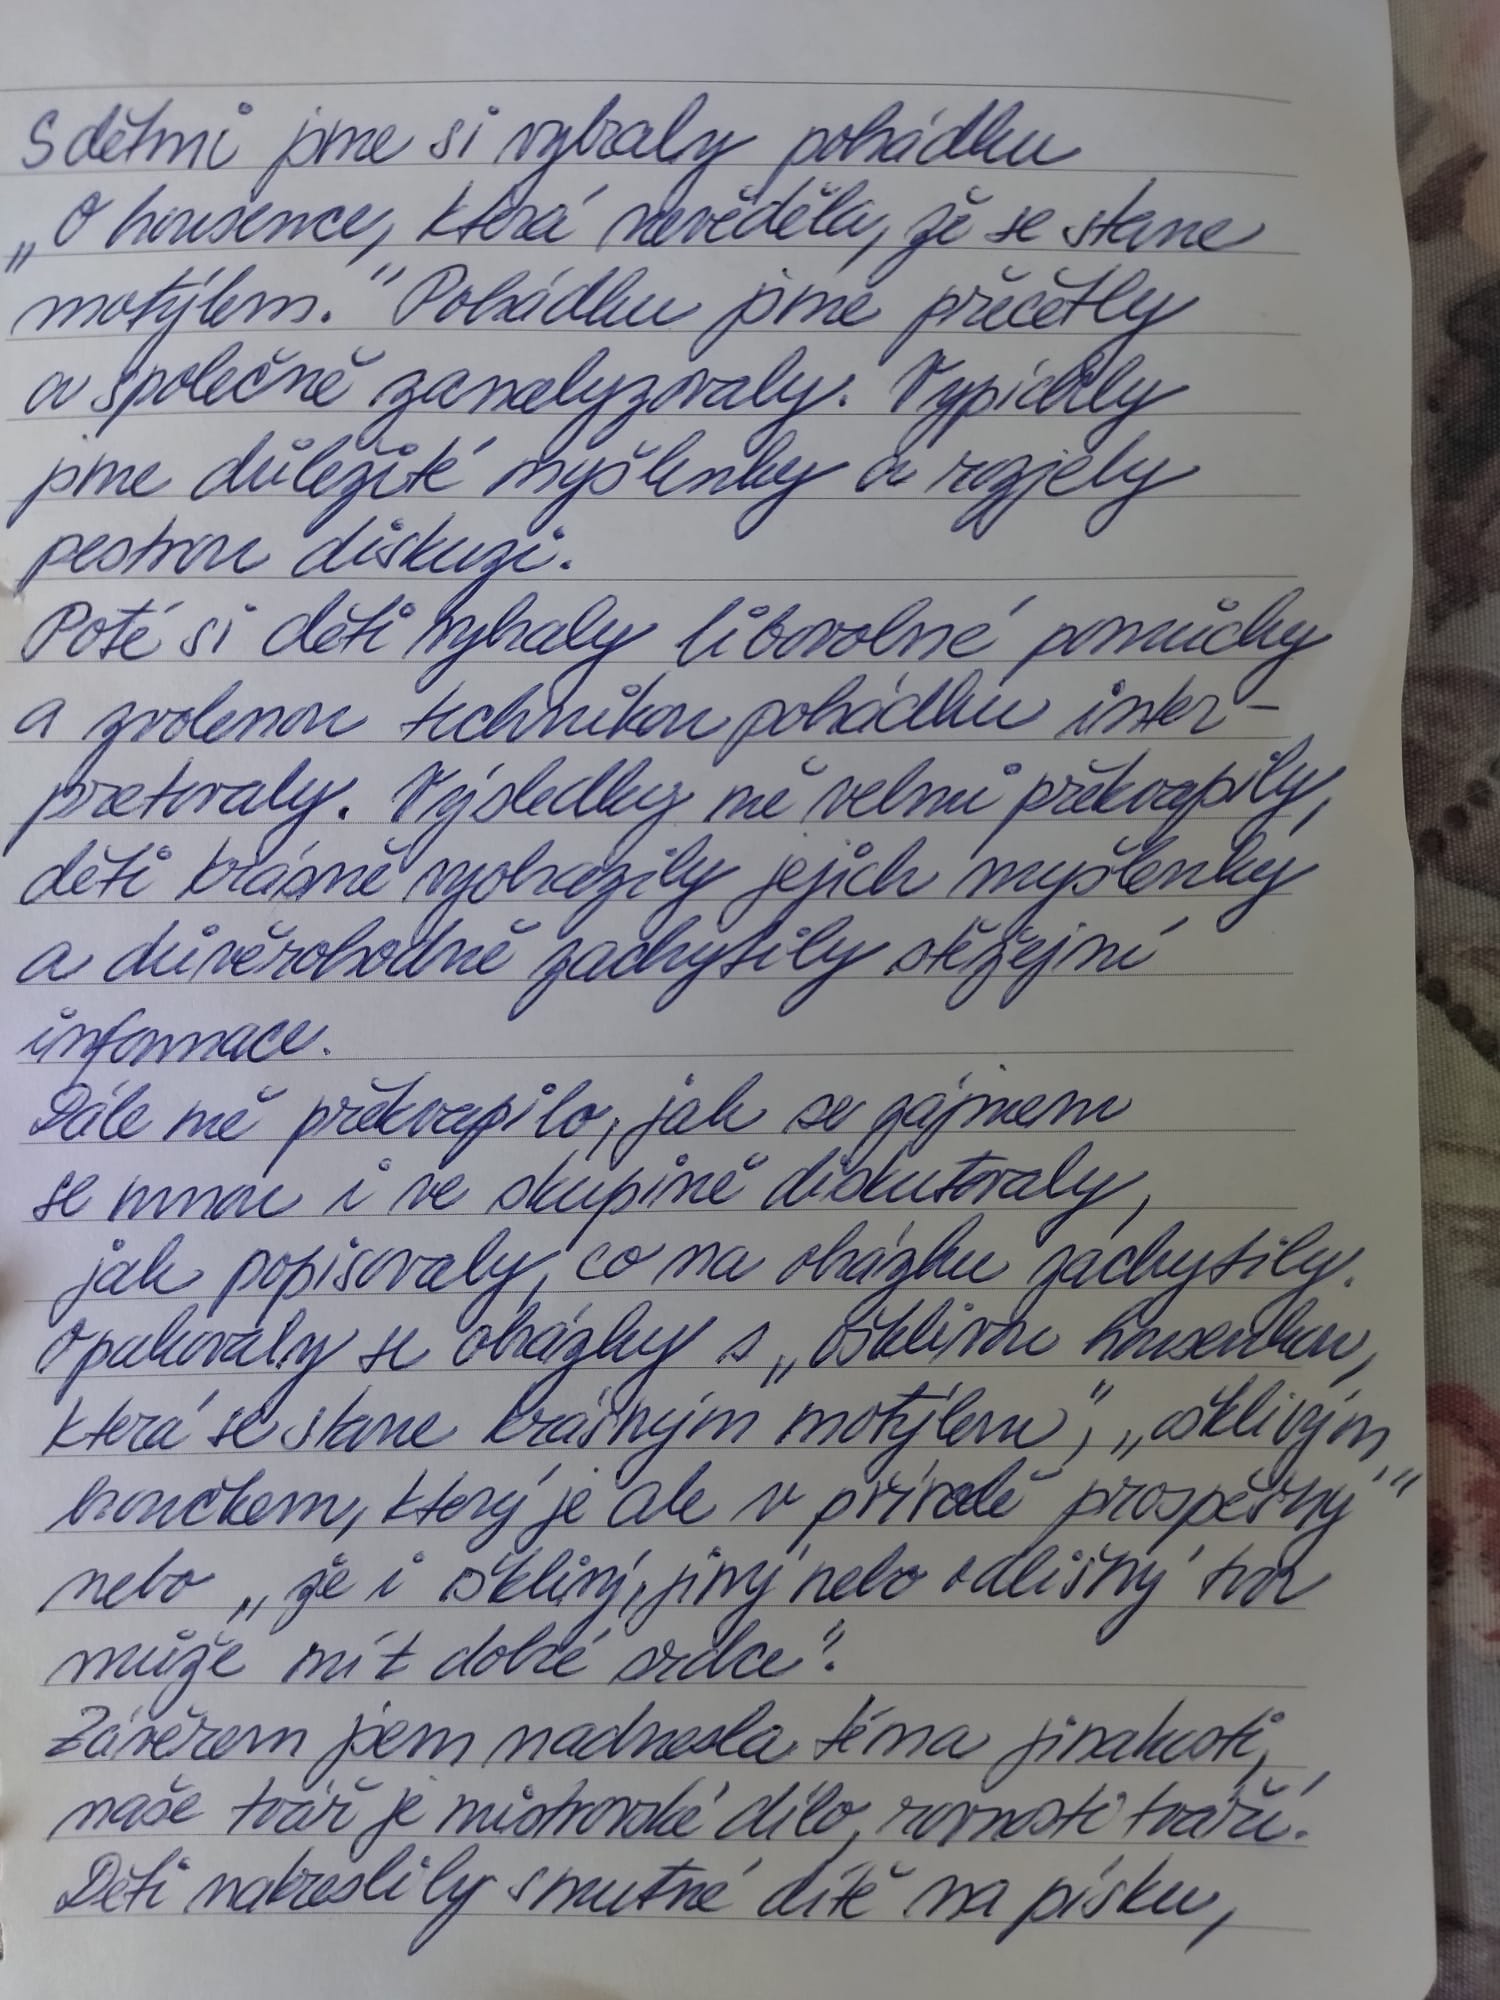 S dětmi jsme si vybraly pohádku
„O housence, která nevěděla, že se stane
motýlem." Pohádku jsme přečetly
a společně zanalyzovaly. Vypíchly
jsme důležité myšlenky a rozjely
pestrou diskuzi.
Poté si děti vybraly libovolné pomůcky
a zvolenou technikou pohádku inter-
pretovaly. Výsledky mě velmi překvapily,
děti krásně vyobrazily jejich myšlenky
a důvěrohodně zachytily stěžejní
informace.
Dále mě překvapilo, jak se zájmem
se mnou i ve skupině diskutovaly,
jak popisovaly, co na obrázku zachytily.
Opakovaly se obrázky s „ošklivou housenkou,
která se stane krásným motýlem", „ošklivým
broučkem, který je ale v přírodě prospěšný"
nebo „že i ošklivý, jiný nebo odlišný tvor
může mít dobré srdce".
Závěrem jsem nadnesla téma jinakosti,
naše tvář je mistrovské dílo, rovnosti tváří.
Děti nakreslily smutné dítě na písku,